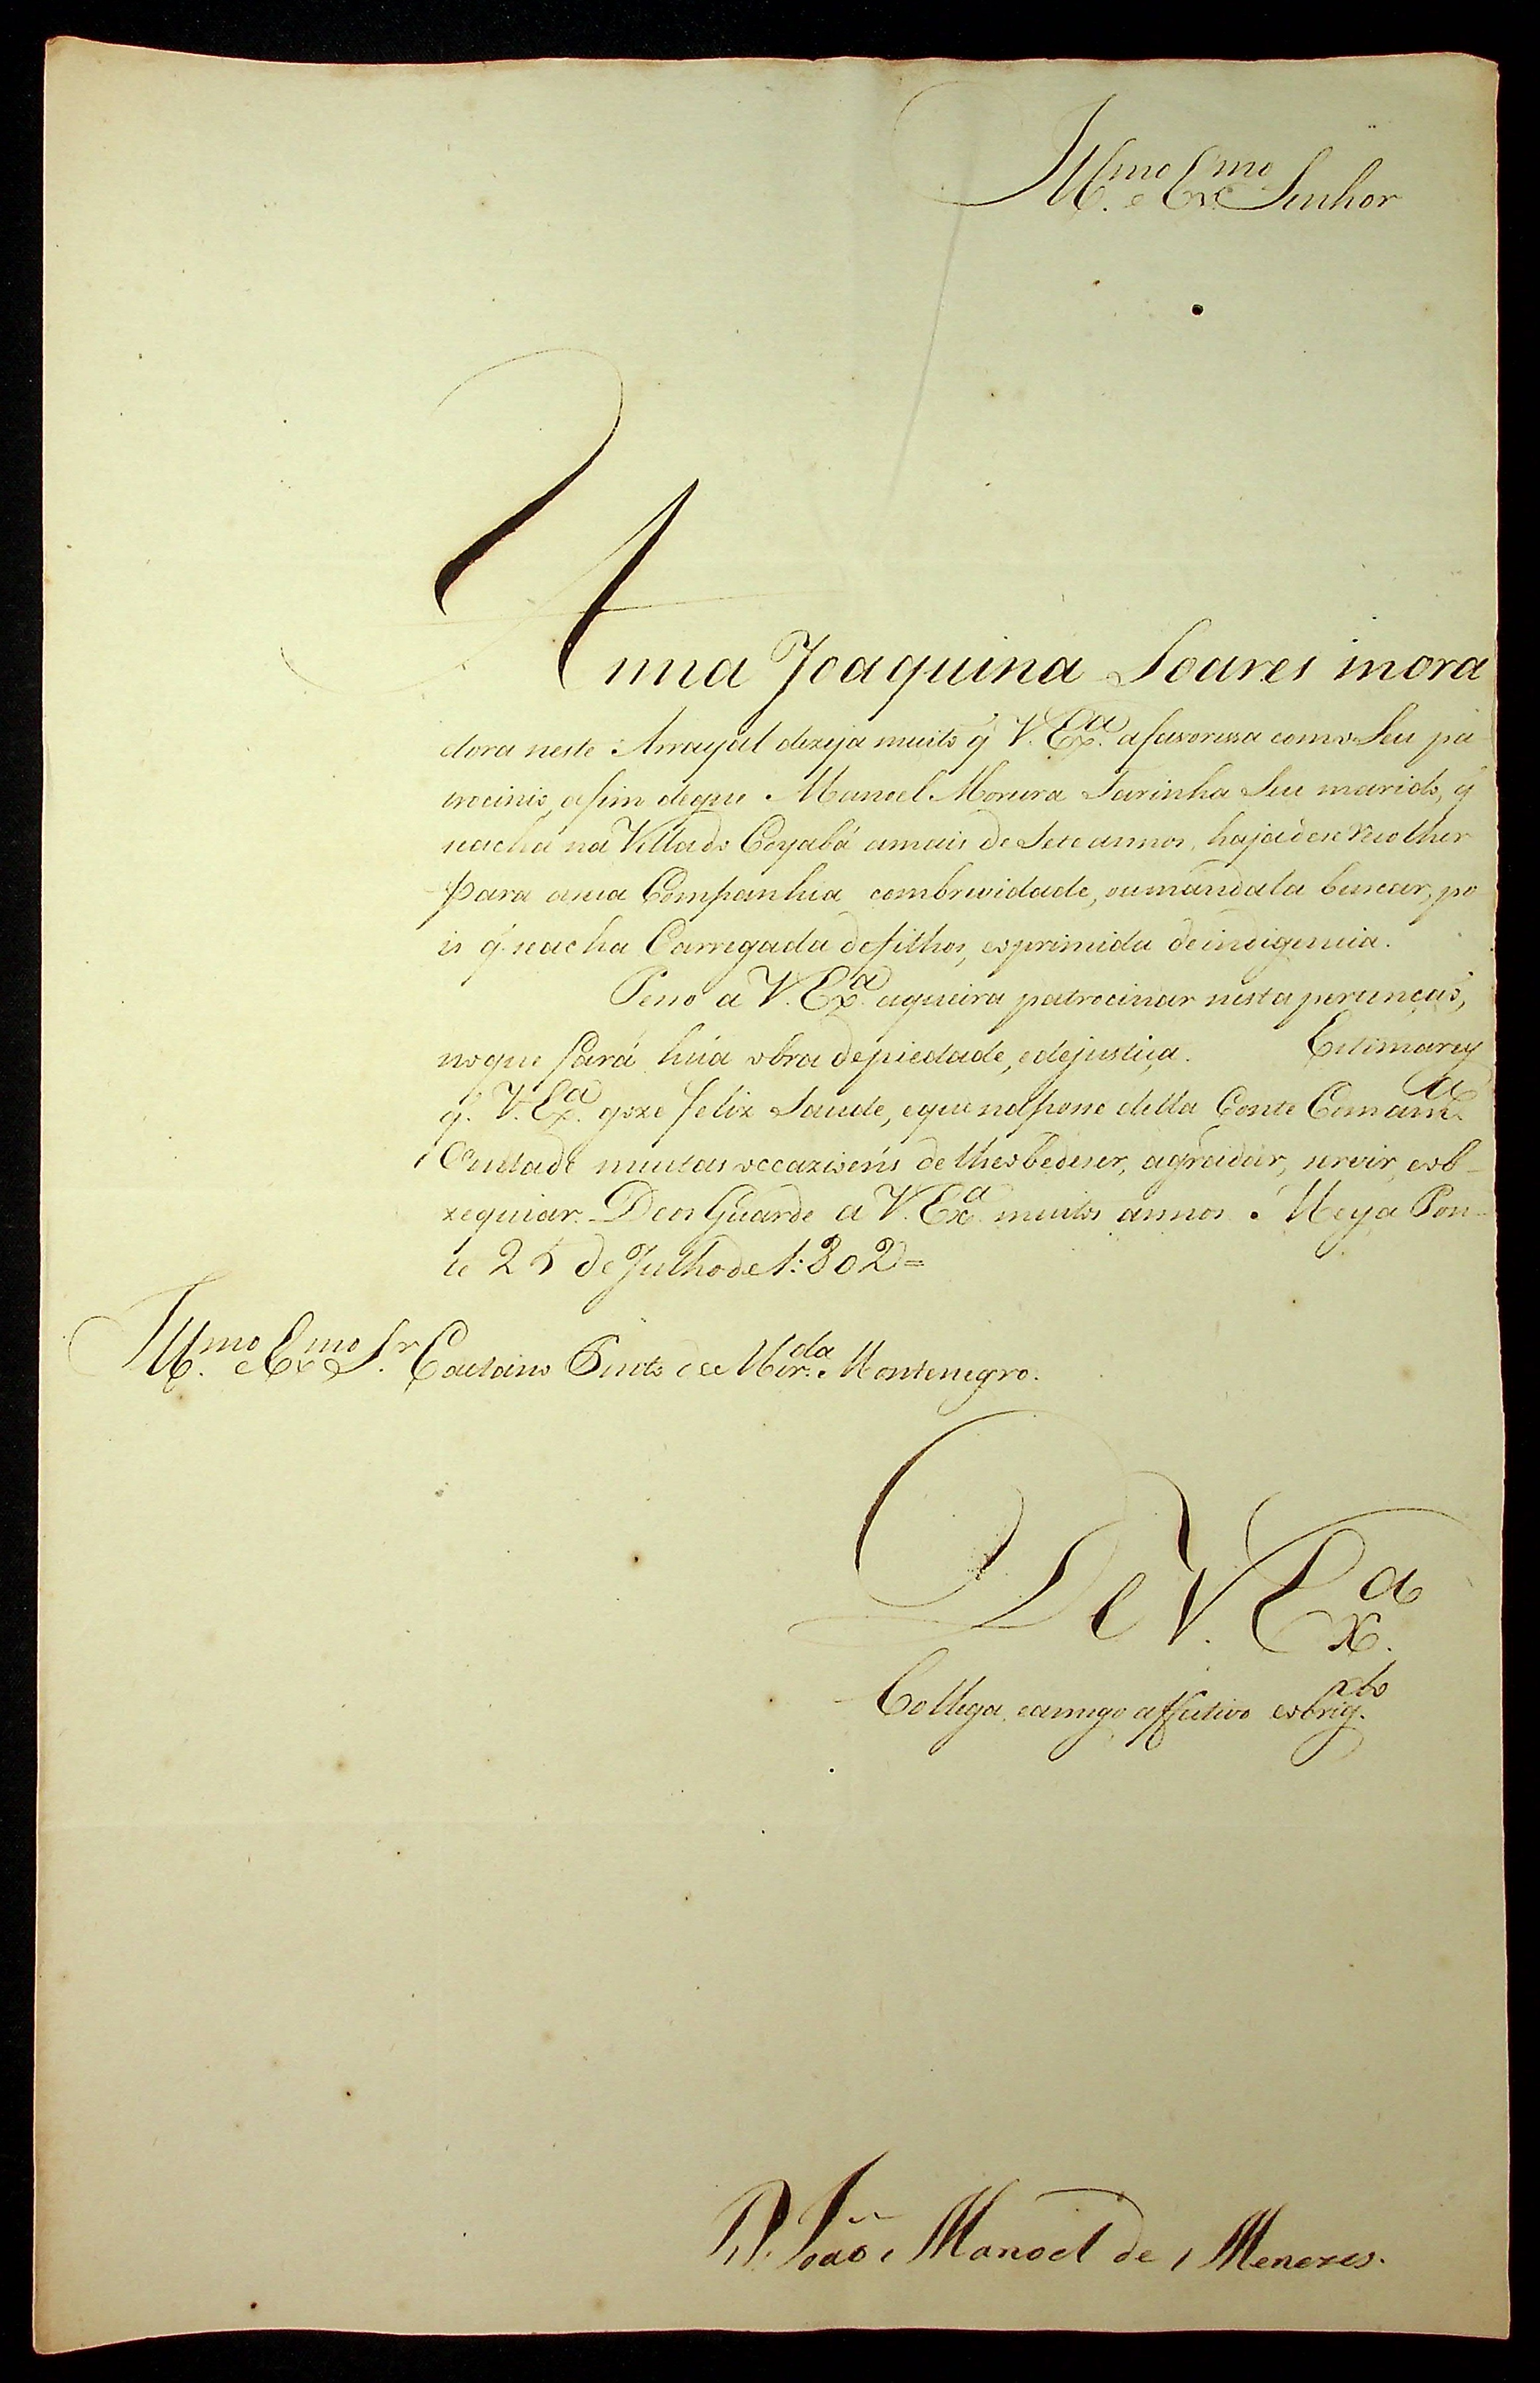 Ill.mo e Ex.mo Senhor
Anna Joaquina Soares mora
dora neste Arrayal dezeja muito q̃ V. Ex.a afavoressa como Seu pa
trocinio, afim deque Manoel Moreira Farinha Seu marido, q̃
seacha na Villado Cuyabá amais de Sete annos, hajadese recolher
para asua Companhia combrevidade, oumandala buscar, po
is q̃ seacha Carregada defilhos, eoprimida deindigencia.
Peno a V. Ex.a aqueira patrocinar nesta pertenção,
noque fará húa obra depiedade, edejustiça. Estimarey
q̃ V. Ex.a goze feliz Saude, eque naposse della Conte Com am.a
Vontade muitas occazioens de lheobedeser, agradar, servir, eob-
zequiar. Deos Guarde a V. Ex.a muitos annos. Meya Pon-
te 25 de Julho de 1:802=
Ill.mo e Ex.mo S.r Caetano Pinto de Mir.da Montenegro.
De V. Ex.a
Collega, eamigo affectivo eobrig.do
D. João Manoel de Menezes.